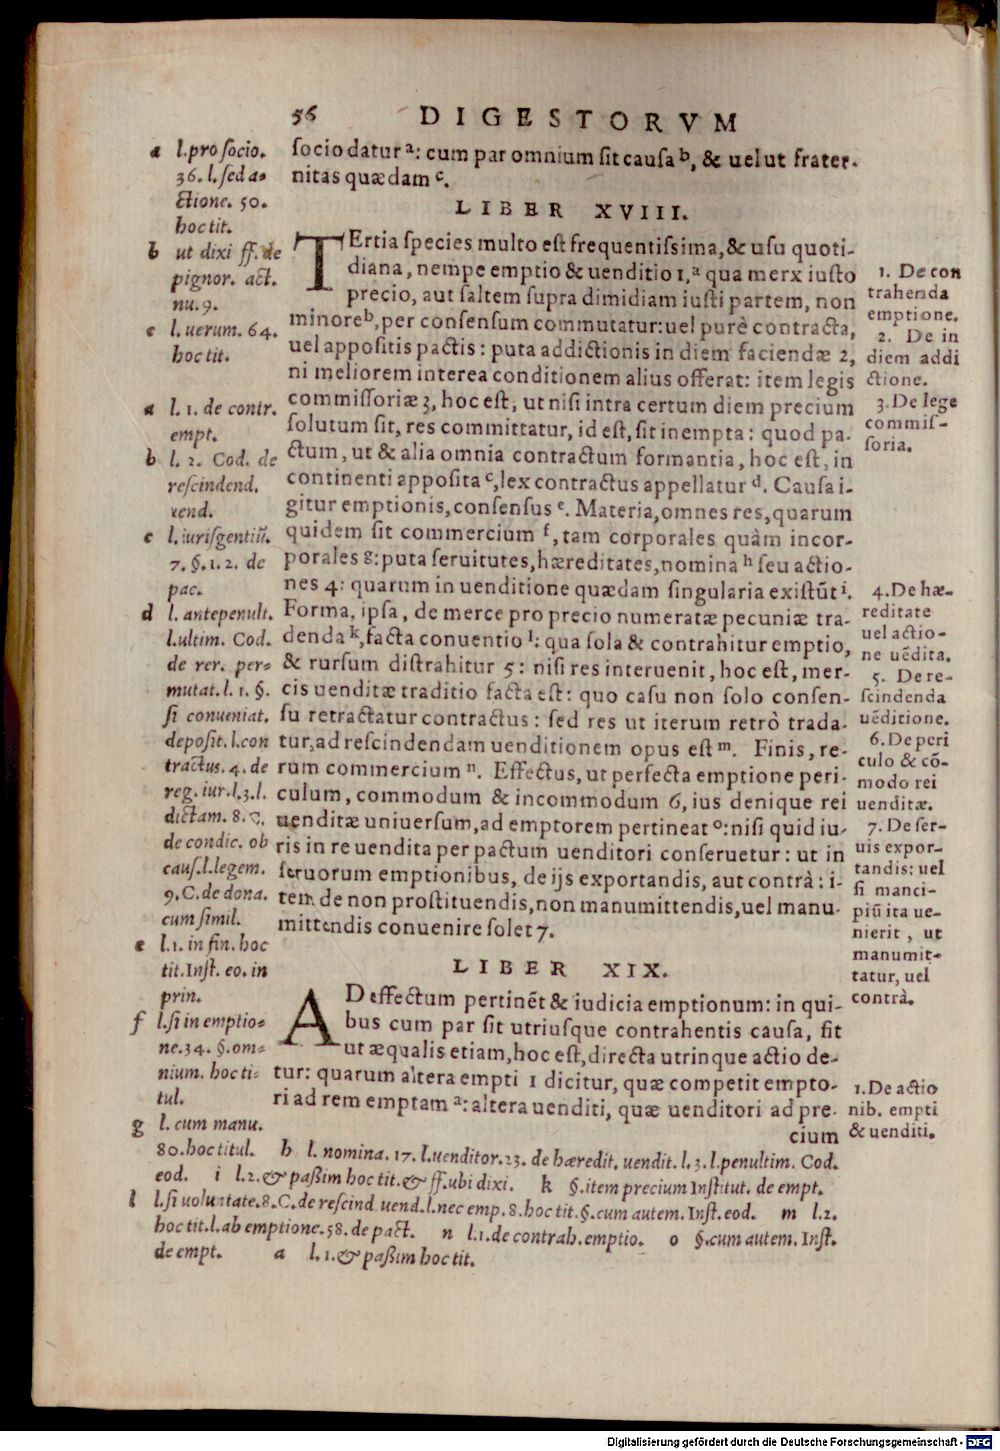 56 DIGESTORVM
socio datur a: cum par omnium sit causa b, & uelut frater-
nitas quædam c.
LIBER XVIII.
TErtia species multo est frequentissima, & usu quoti-
diana, nempe emptio & uenditio 1, a qua merx iusto
precio, aut saltem supra dimidiam iusti partem, non
minore b, per consensum commutatur: uel purè contracta,
uel appositis pactis: puta addictionis in diem faciendæ 2,
ni meliorem interea conditionem alius offerat: item legis
commissoriæ 3, hoc est, ut nisi intra certum diem precium
solutum sit, res committatur, id est, sit inempta: quod pa-
ctum, ut & alia omnia contractum formantia, hoc est, in
continenti apposita c, lex contractus appellatur d. Causa i-
gitur emptionis, consensus e. Materia, omnes res, quarum
quidem sit commercium f, tam corporales quàm incor-
porales g: puta seruitutes, hæreditates, nomina h seu actio-
nes 4: quarum in uenditione quædam singularia existūt i.
Forma, ipsa, de merce pro precio numeratæ pecuniæ tra-
denda k, facta conuentio l: qua sola & contrahitur emptio,
& rursum distrahitur 5: nisi res interuenit, hoc est, mer-
cis uenditæ traditio facta est: quo casu non solo consen-
su retractatur contractus: sed res ut iterum retrò trada-
tur, ad rescindendam uenditionem opus est m. Finis, re-
rum commercium n. Effectus, ut perfecta emptione peri-
culum, commodum & incommodum 6, ius denique rei
uenditæ uniuersum, ad emptorem pertineat o: nisi quid iu-
ris in re uendita per pactum uenditori conseruetur: ut in
seruorum emptionibus, de ijs exportandis, aut contrà: i-
tem de non prostituendis, non manumittendis, uel manu-
mittendis conuenire solet 7.
LIBER XIX.
AD effectum pertinēt & iudicia emptionum: in qui-
bus cum par sit utriusque contrahentis causa, fit
ut æqualis etiam, hoc est, directa utrinque actio de-
tur: quarum altera empti 1 dicitur, quæ competit empto-
ri ad rem emptam a: altera uenditi, quæ uenditori ad pre-
cium
a l. pro socio.
36. l. sed a-
ctione. 50.
hoc tit.
b ut dixi ff. de
pignor. act.
nu. 9.
c l. uerum. 64.
hoc tit.
a l. 1. de contr.
empt.
b l. 2. Cod. de
rescindend.
vend.
c l. iurisgentiū.
7. §. 1. 2. de
pac.
d l. antepenult.
l. ultim. Cod.
de rer. per-
mutat. l. 1. §.
si conueniat.
deposit. l. con
tractus. 4. de
reg. iur. l. 3. l.
dictam. 8. C.
de condic. ob
caus. l. legem.
9. C. de dona.
cum simil.
e l. 1. in fin. hoc
tit. Inst. eo. in
prin.
f l. si in emptio-
ne. 34. §. om-
nium. hoc ti-
tul.
g l. cum manu.
80. hoc titul. h l. nomina. 17. l. uenditor. 23. de hæredit. uendit. l. 3. l. penultim. Cod.
eod. i l. 2. & passim hoc tit. & ff. ubi dixi. k §. item precium Institut. de empt.
l l. si uoluntate. 8. C. de rescind. uend. l. nec emp. 8. hoc tit. §. cum autem. Inst. eod. m l. 2.
hoc tit. l. ab emptione. 58. de pact. n l. 1. de contrah. emptio. o §. cum autem. Inst.
de empt. a l. 1. & passim hoc tit.
1. De con
trahenda
emptione.
2. De in
diem addi
ctione.
3. De lege
commis-
soria.
4. De hæ-
reditate
uel actio-
ne uēdita.
5. De re-
scindenda
uēditione.
6. De peri
culo & cō-
modo rei
uenditæ.
7. De ser-
uis expor-
tandis: uel
si manci-
piū ita ue-
nierit, ut
manumit-
tatur, uel
contrà.
1. De actio
nib. empti
& uenditi.
Digitalisierung gefördert durch die Deutsche Forschungsgemeinschaft - DFG